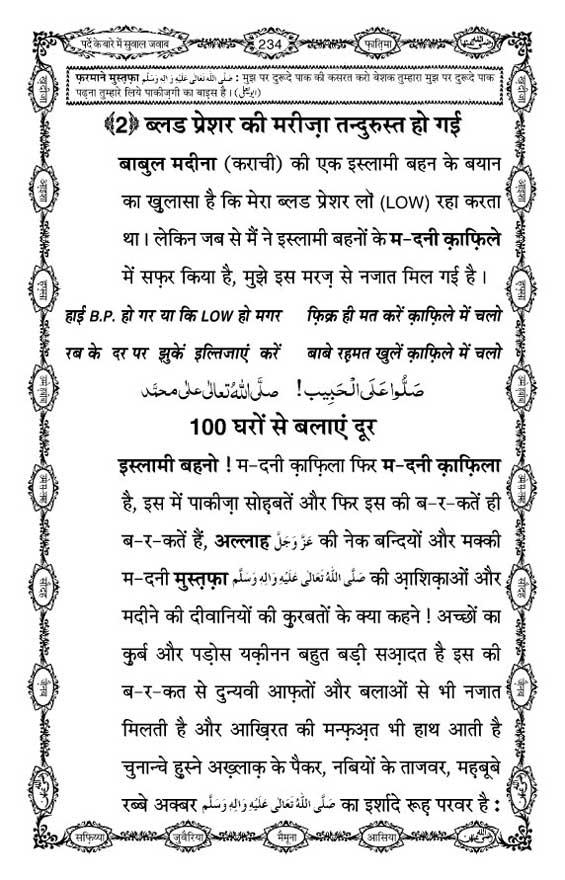 पर्दे के बारे में सुवाल जवाब
234
फ़ातिमा
फ़रमाने मुस्तफ़ा صَلَّى اللهُ تَعَالٰى عَلَيْهِ وَاٰلِهٖ وَسَلَّم : मुझ पर दुरूदे पाक की कसरत करो बेशक तुम्हारा मुझ पर दुरूदे पाक
पढ़ना तुम्हारे लिये पाकीज़गी का बाइस है । (ابو یعلیٰ)
﴾2﴿ ब्लड प्रेशर की मरीज़ा तन्दुरुस्त हो गई
बाबुल मदीना (कराची) की एक इस्लामी बहन के बयान
का खुलासा है कि मेरा ब्लड प्रेशर लॉ (LOW) रहा करता
था । लेकिन जब से मैं ने इस्लामी बहनों के म-दनी क़ाफ़िले
में सफ़र किया है, मुझे इस मरज़ से नजात मिल गई है ।
हाई B.P. हो गर या कि LOW हो मगर फ़िक्र ही मत करें क़ाफ़िले में चलो
रब के दर पर झुकें इल्तिजाएं करें बाबे रह़मत खुलें क़ाफ़िले में चलो
صَلُّوا عَلَى الْحَبِيب! صلَّى اللهُ تعالىٰ على محمَّد
100 घरों से बलाएं दूर
इस्लामी बहनो ! म-दनी क़ाफ़िला फिर म-दनी क़ाफ़िला
है, इस में पाकीज़ा सोह़बतें और फिर इस की ब-र-कतें ही
ब-र-कतें हैं, अल्लाह عَزَّوَجَلَّ की नेक बन्दियों और मक्की
म-दनी मुस्त़फ़ा صَلَّى اللهُ تَعَالٰى عَلَيْهِ وَاٰلِهٖ وَسَلَّم की आ़शिकाओं और
मदीने की दीवानियों की क़ुरबतों के क्या कहने ! अच्छों का
क़ुर्ब और पड़ोस यक़ीनन बहुत बड़ी सआ़दत है इस की
ब-र-कत से दुन्यवी आफ़तों और बलाओं से भी नजात
मिलती है और आख़िरत की मन्फ़अ़त भी हाथ आती है
चुनान्चे हुस्ने अख़्लाक़ के पैकर, नबियों के ताजवर, मह़बूबे
रब्बे अक्बर صَلَّى اللهُ تَعَالٰى عَلَيْهِ وَاٰلِهٖ وَسَلَّم का इर्शादे रूह़ परवर है :
सफ़िय्या
जुवैरिया
मैमूना
आसिया